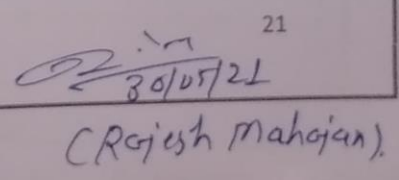 21
30/05/21
(Rajesh Mahajan).